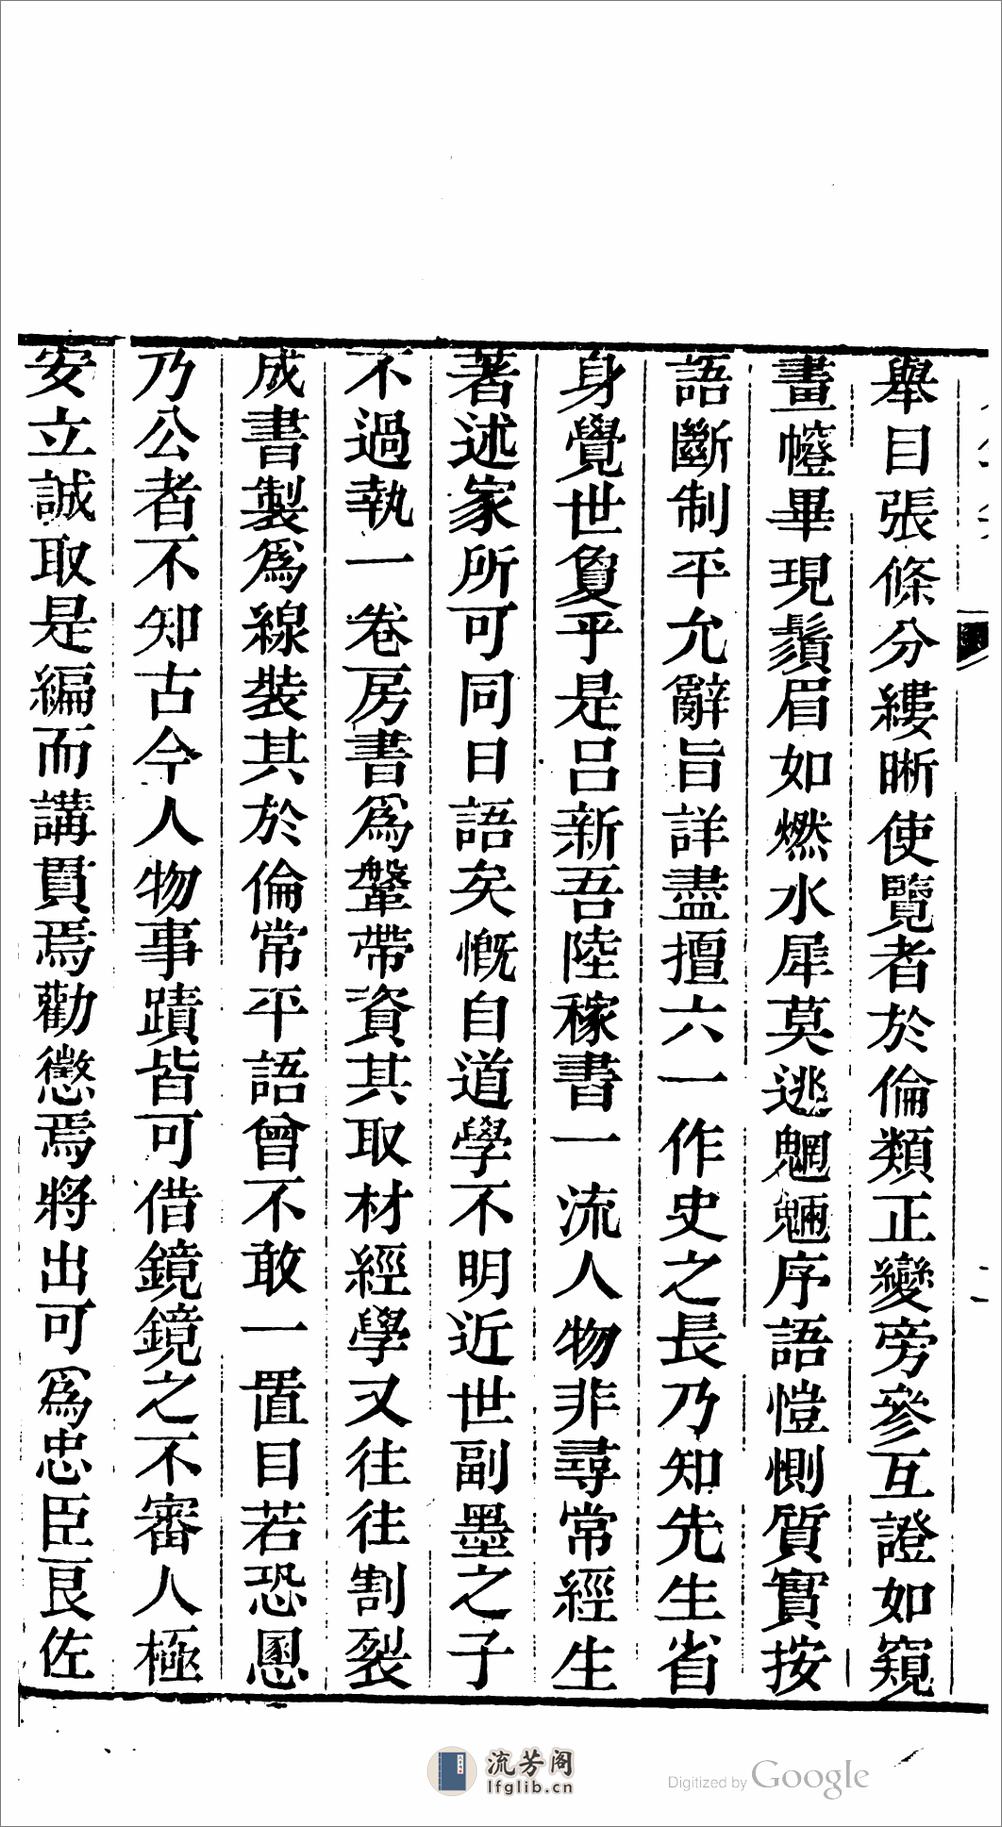 舉目張條分縷晰使覽者於倫類正變旁參互證如窺
畫幰畢現鬚眉如燃水犀莫逃魍魎序語愷惻質實按
語斷制平允辭旨詳盡擅六一作史之長乃知先生省
身覺世敻乎是呂新吾陸稼書一流人物非尋常經生
著述家所可同日語矣慨自道學不明近世副墨之子
不過執一卷房書爲鞶帶資其取材經學又往往割裂
成書製爲線裝其於倫常平語曾不敢一置目若恐慁
乃公者不知古今人物事蹟皆可借鏡鏡之不審人極
安立誠取是編而講貫焉勸懲焉將出可爲忠臣良佐
流芳阁
lfglib.cn
Digitized by Google